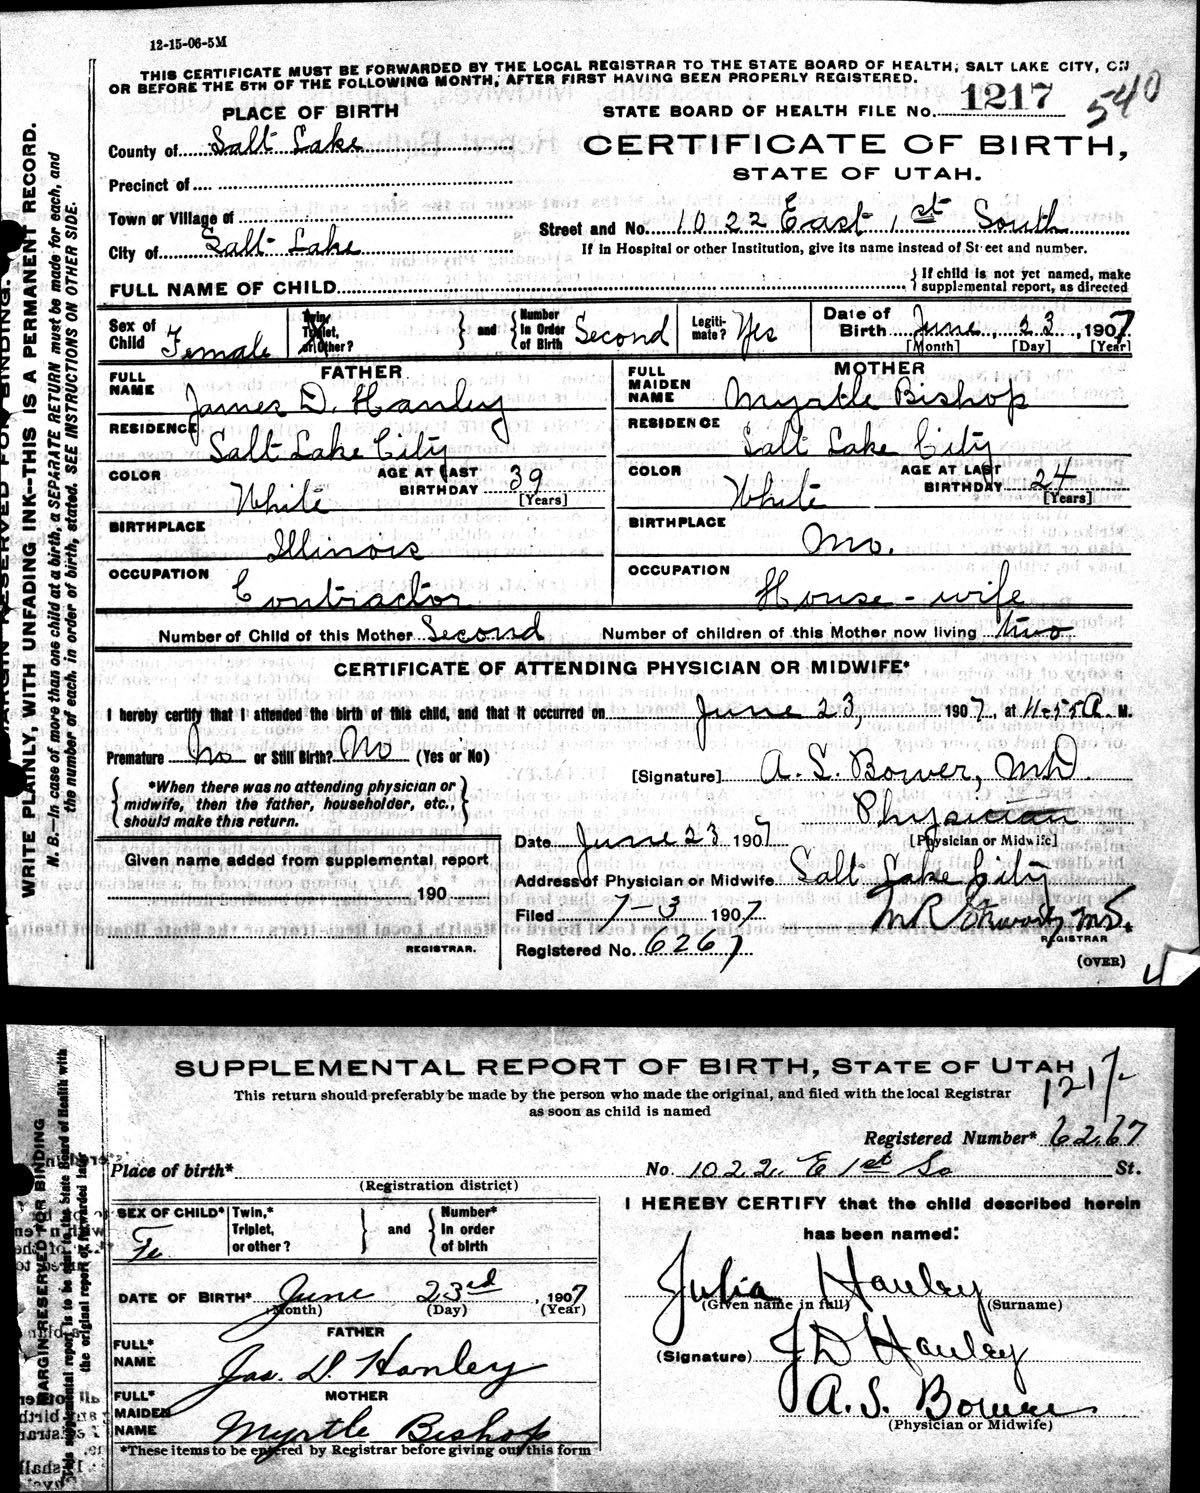 12-15-06-5M
THIS CERTIFICATE MUST BE FORWARDED BY THE LOCAL REGISTRAR TO THE STATE BOARD OF HEALTH, SALT LAKE CITY, ON
OR BEFORE THE 5TH OF THE FOLLOWING MONTH, AFTER FIRST HAVING BEEN PROPERLY REGISTERED.
MARGIN RESERVED FOR BINDING.
WRITE PLAINLY, WITH UNFADING INK--THIS IS A PERMANENT RECORD.
N. B.—In case of more than one child at a birth, a SEPARATE RETURN must be made for each, and
the number of each, in order of birth, stated. SEE INSTRUCTIONS ON OTHER SIDE.
STATE BOARD OF HEALTH FILE No. 1217
540
PLACE OF BIRTH
CERTIFICATE OF BIRTH,
STATE OF UTAH.
County of Salt Lake
Precinct of
Town or Village of
City of Salt Lake
Street and No. 1022 East 1st South
If in Hospital or other Institution, give its name instead of Street and number.
FULL NAME OF CHILD
{ If child is not yet named, make
supplemental report, as directed
Sex of Child Female
Twin, Triplet, or Other?
} and {
Number In Order of Birth Second
Legiti-mate? Yes
Date of Birth June 23, 1907
[Month] [Day] [Year]
FATHER
FULL NAME James D. Hanley
RESIDENCE Salt Lake City
COLOR White
AGE AT LAST BIRTHDAY 39
[Years]
BIRTHPLACE Illinois
OCCUPATION Contractor
MOTHER
FULL MAIDEN NAME Myrtle Bishop
RESIDENCE Salt Lake City
COLOR White
AGE AT LAST BIRTHDAY 24
[Years]
BIRTHPLACE Mo.
OCCUPATION House-wife
Number of Child of this Mother Second Number of children of this Mother now living two
CERTIFICATE OF ATTENDING PHYSICIAN OR MIDWIFE*
I hereby certify that I attended the birth of this child, and that it occurred on June 23, 1907, at 11-55 A M.
Premature No or Still Birth? No (Yes or No)
{ *When there was no attending physician or
midwife, then the father, householder, etc.,
should make this return. }
[Signature] A. S. Bower, MD.
Physician
[Physician or Midwife]
Date June 23 1907
Address of Physician or Midwife Salt Lake City
Filed 7-3 1907
REGISTRAR
Registered No. 6267
(OVER)
Given name added from supplemental report
190
REGISTRAR.
SUPPLEMENTAL REPORT OF BIRTH, STATE OF UTAH
1217
This return should preferably be made by the person who made the original, and filed with the local Registrar
as soon as child is named
MARGIN RESERVED FOR BINDING
This supplemental report is to be sent to the State Board of Health with
the original report or forwarded later
Registered Number* 6267
Place of birth*
(Registration district)
No. 1022 E 1st So St.
SEX OF CHILD* Fe
Twin,* Triplet, or other?
} and {
Number* In order of birth
DATE OF BIRTH* June 23rd, 1907
(Month) (Day) (Year)
FATHER
FULL* NAME Jas. D. Hanley
MOTHER
FULL* MAIDEN NAME Myrtle Bishop
*These items to be entered by Registrar before giving out this form
I HEREBY CERTIFY that the child described herein
has been named:
Julia Hanley
(Given name in full) (Surname)
(Signature) J D Hanley
A. S. Bower
(Physician or Midwife)